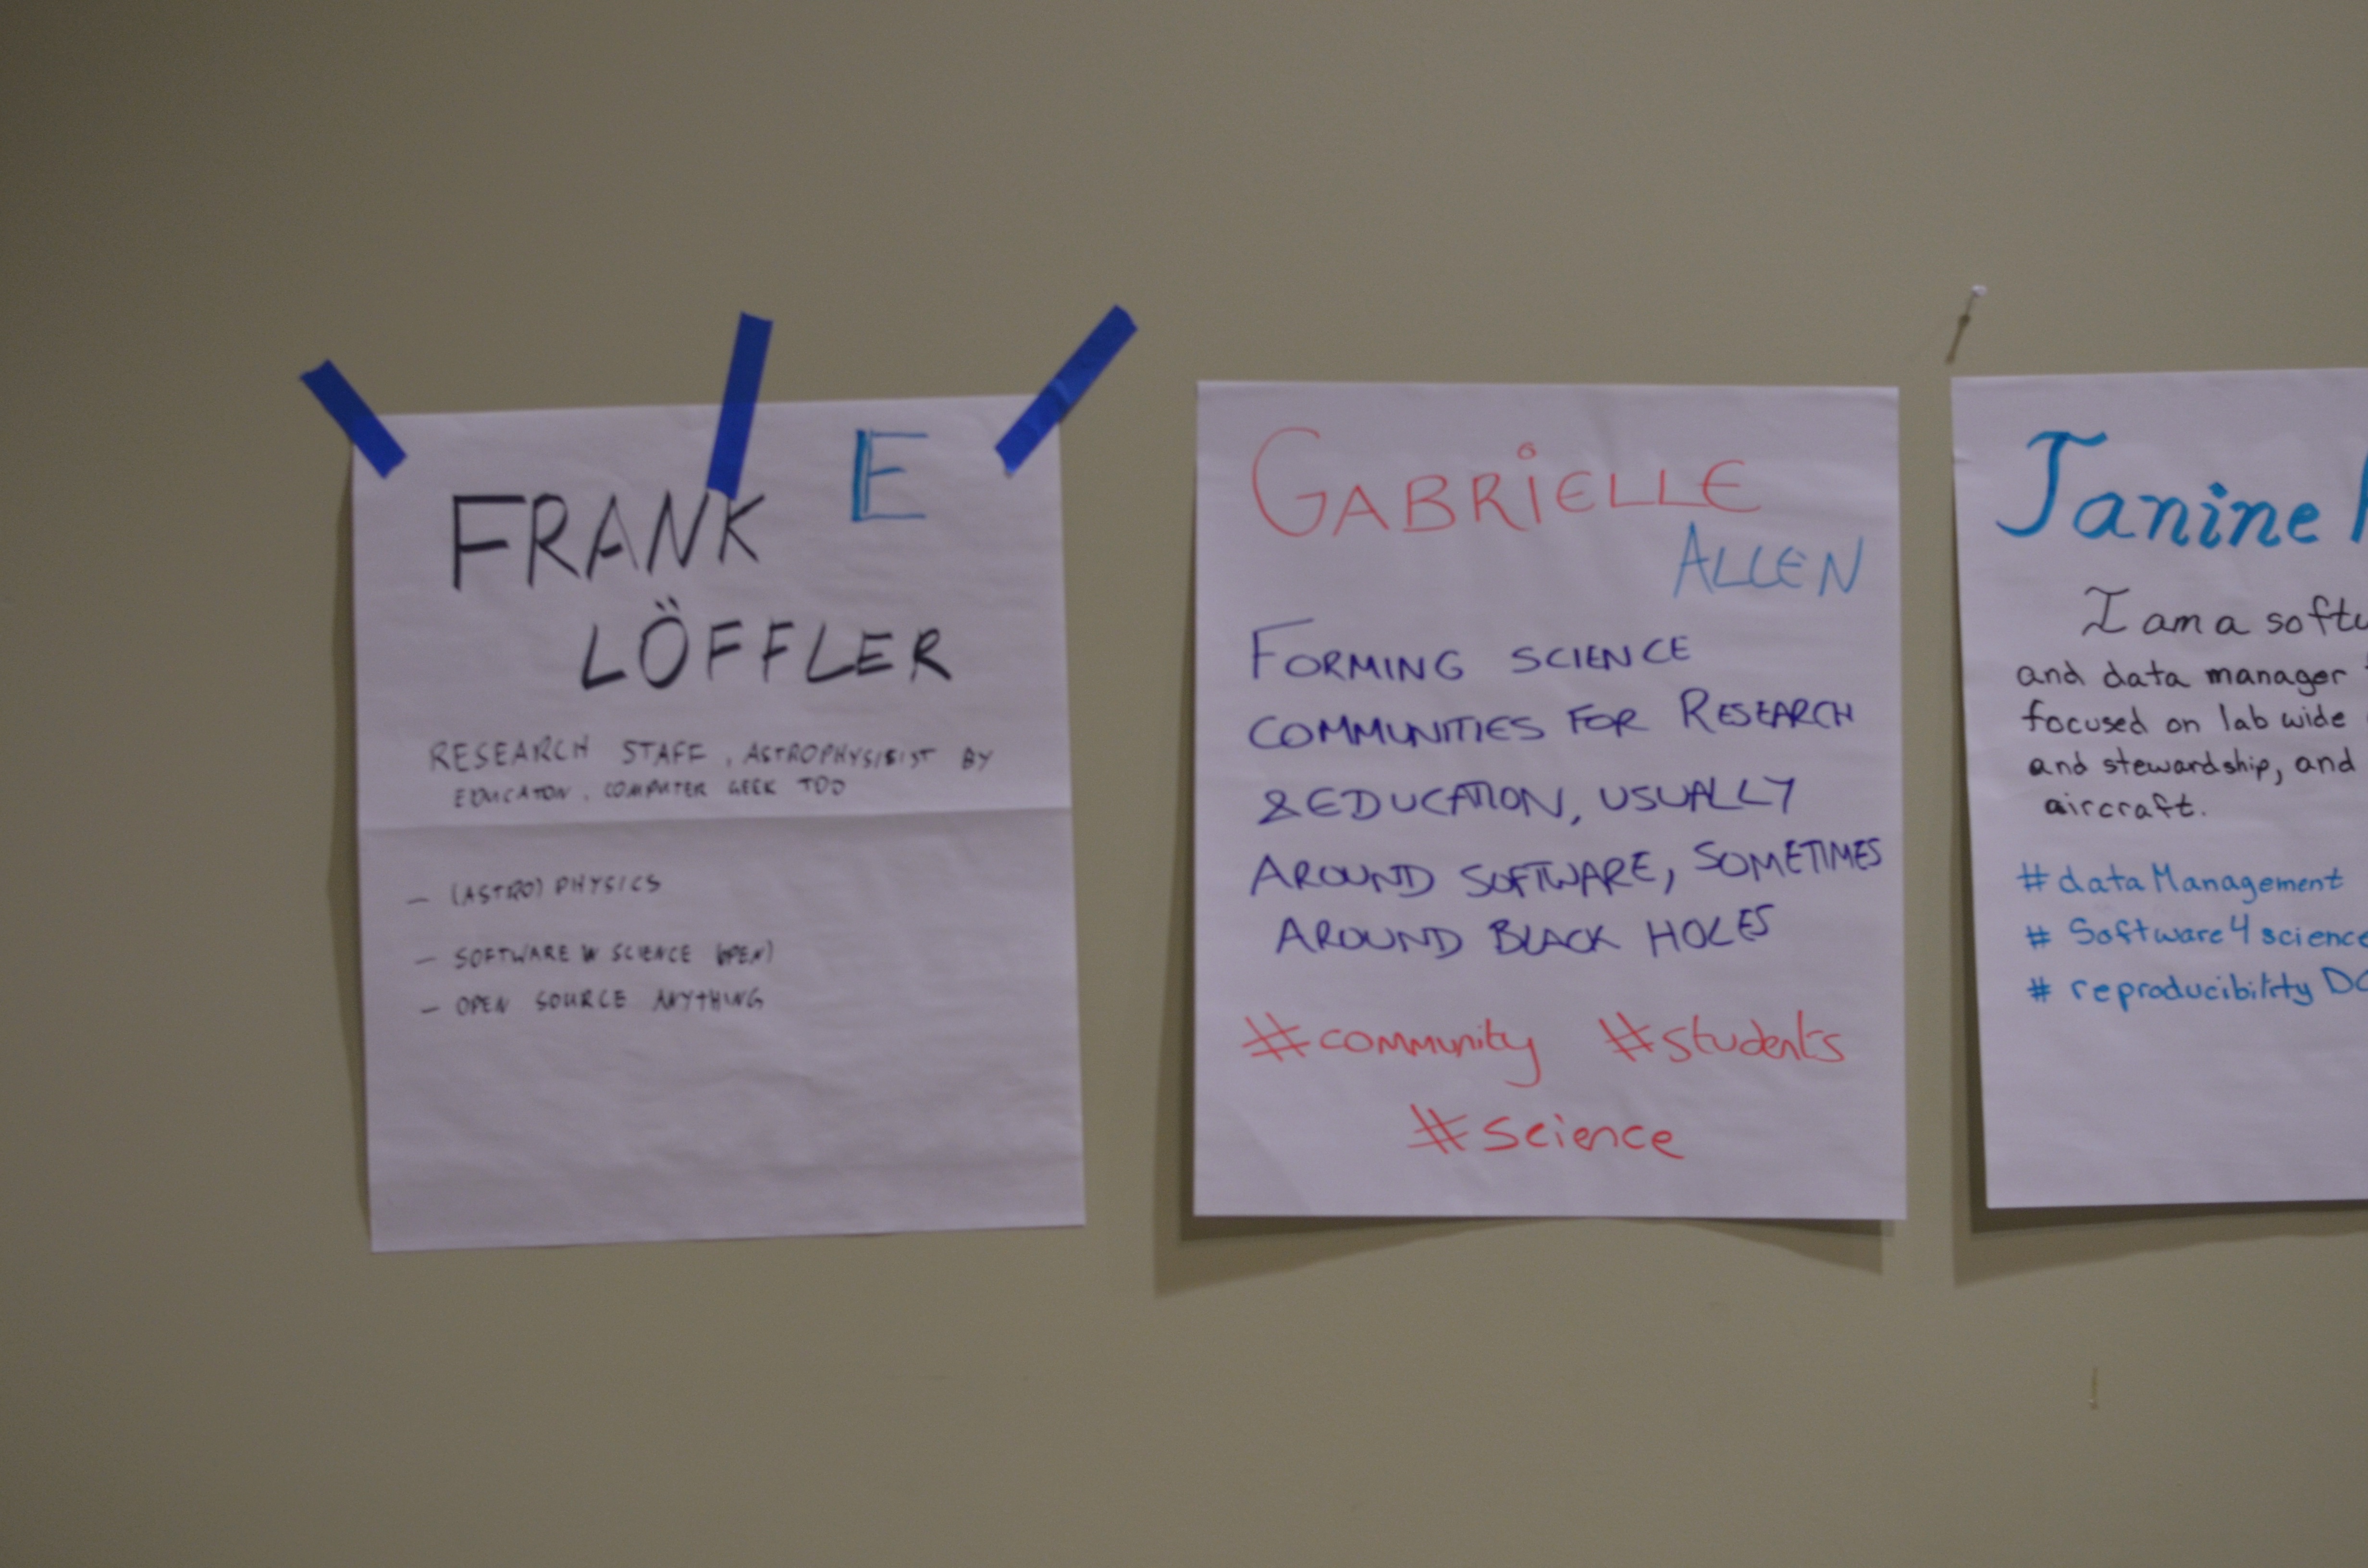 E
FRANK
LÖFFLER
RESEARCH STAFF, ASTROPHYSICIST BY
EDUCATON, COMPUTER GEEK TOO
– (ASTRO) PHYSICS
– SOFTWARE IN SCIENCE (OPEN)
– OPEN SOURCE ANYTHING
GABRIELLE
ALLEN
FORMING SCIENCE
COMMUNITIES FOR RESEARCH
& EDUCATION, USUALLY
AROUND SOFTWARE, SOMETIMES
AROUND BLACK HOLES
#community #students
#science
Janine
I am a softw
and data manager
focused on lab wide
and stewardship, and
aircraft.
#dataManagement
# Software4science
# reproducibility